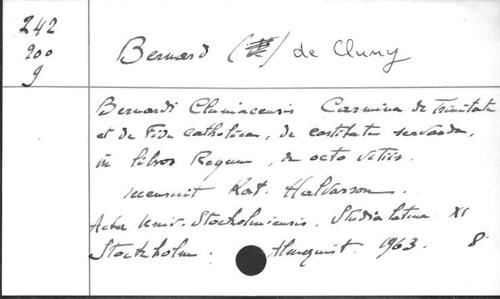 242
200
9
Bernard () de Cluny
Bernardi Cluniacensis Carmina de Trinitate
et de Fide catholica, de castitate servanda,
in libros Regum, de octo vitiis.
recensuit Kat. Halvarson.
Acta Univ. Stockholmiensis. Studia latina XI
Stockholm. Almquist. 1963. 8°